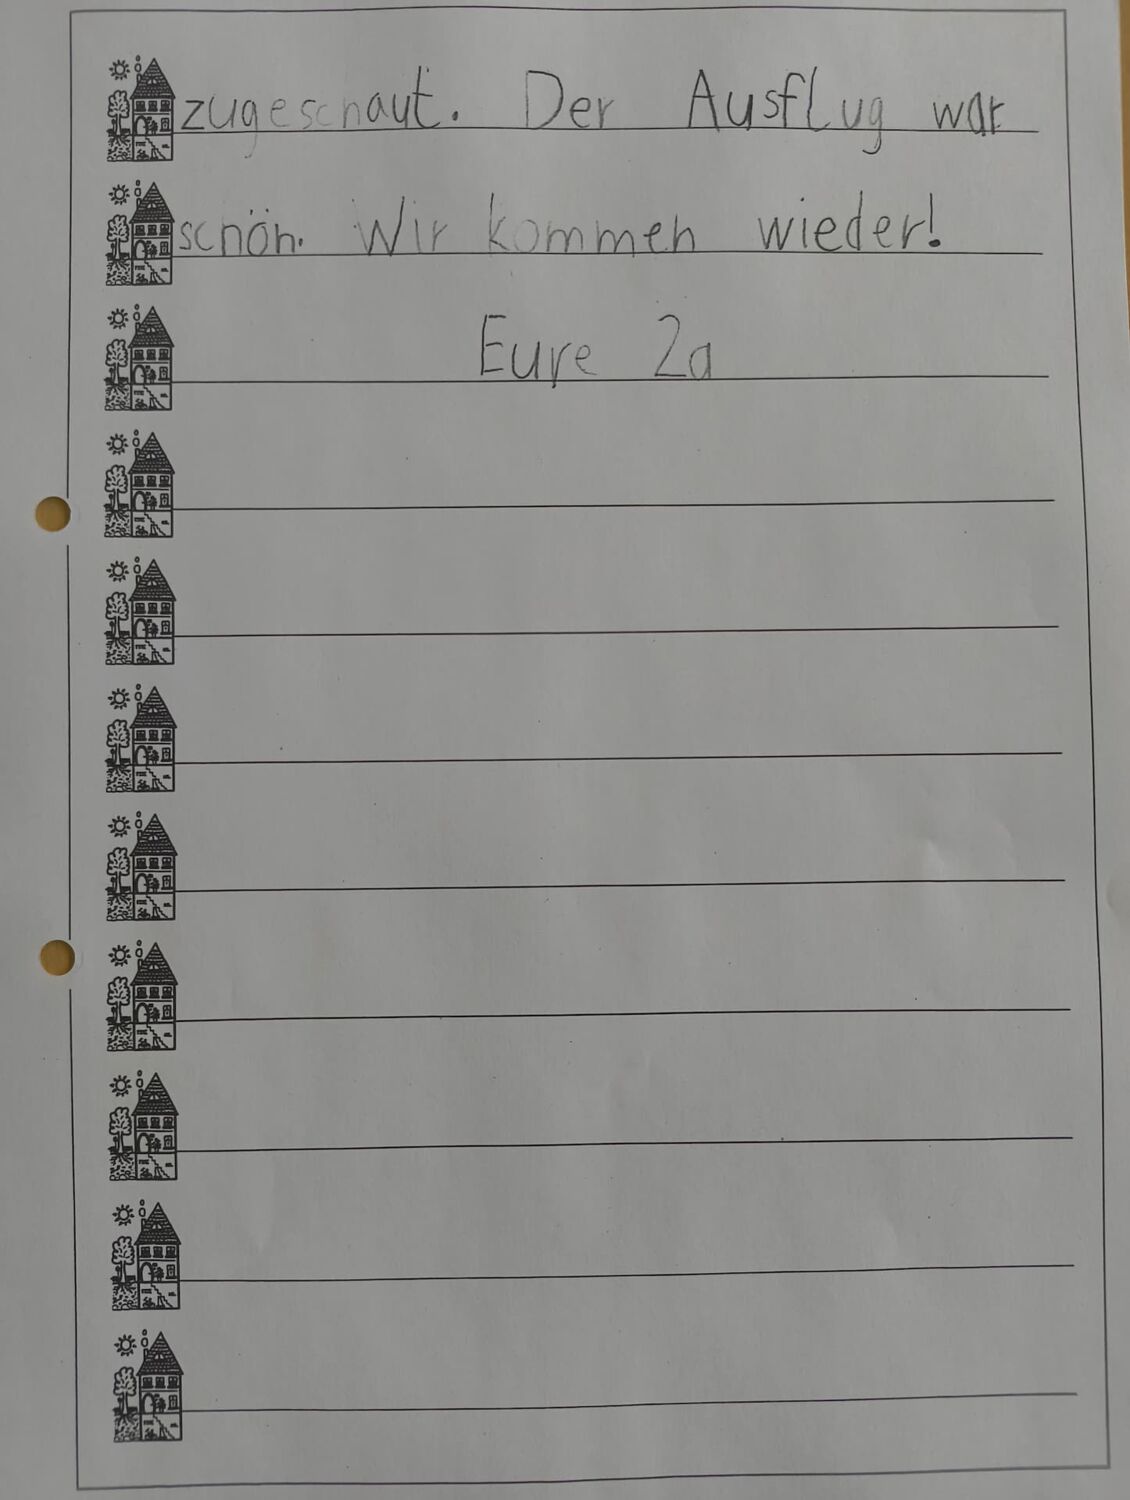 zugeschaut. Der Ausflug war
schön. Wir kommen wieder!
Eure 2a